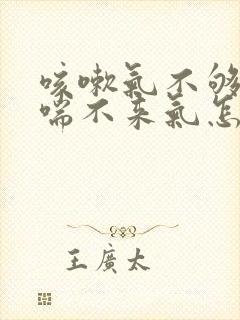 咳嗽氣不够
喘不来氣怎
王廣太